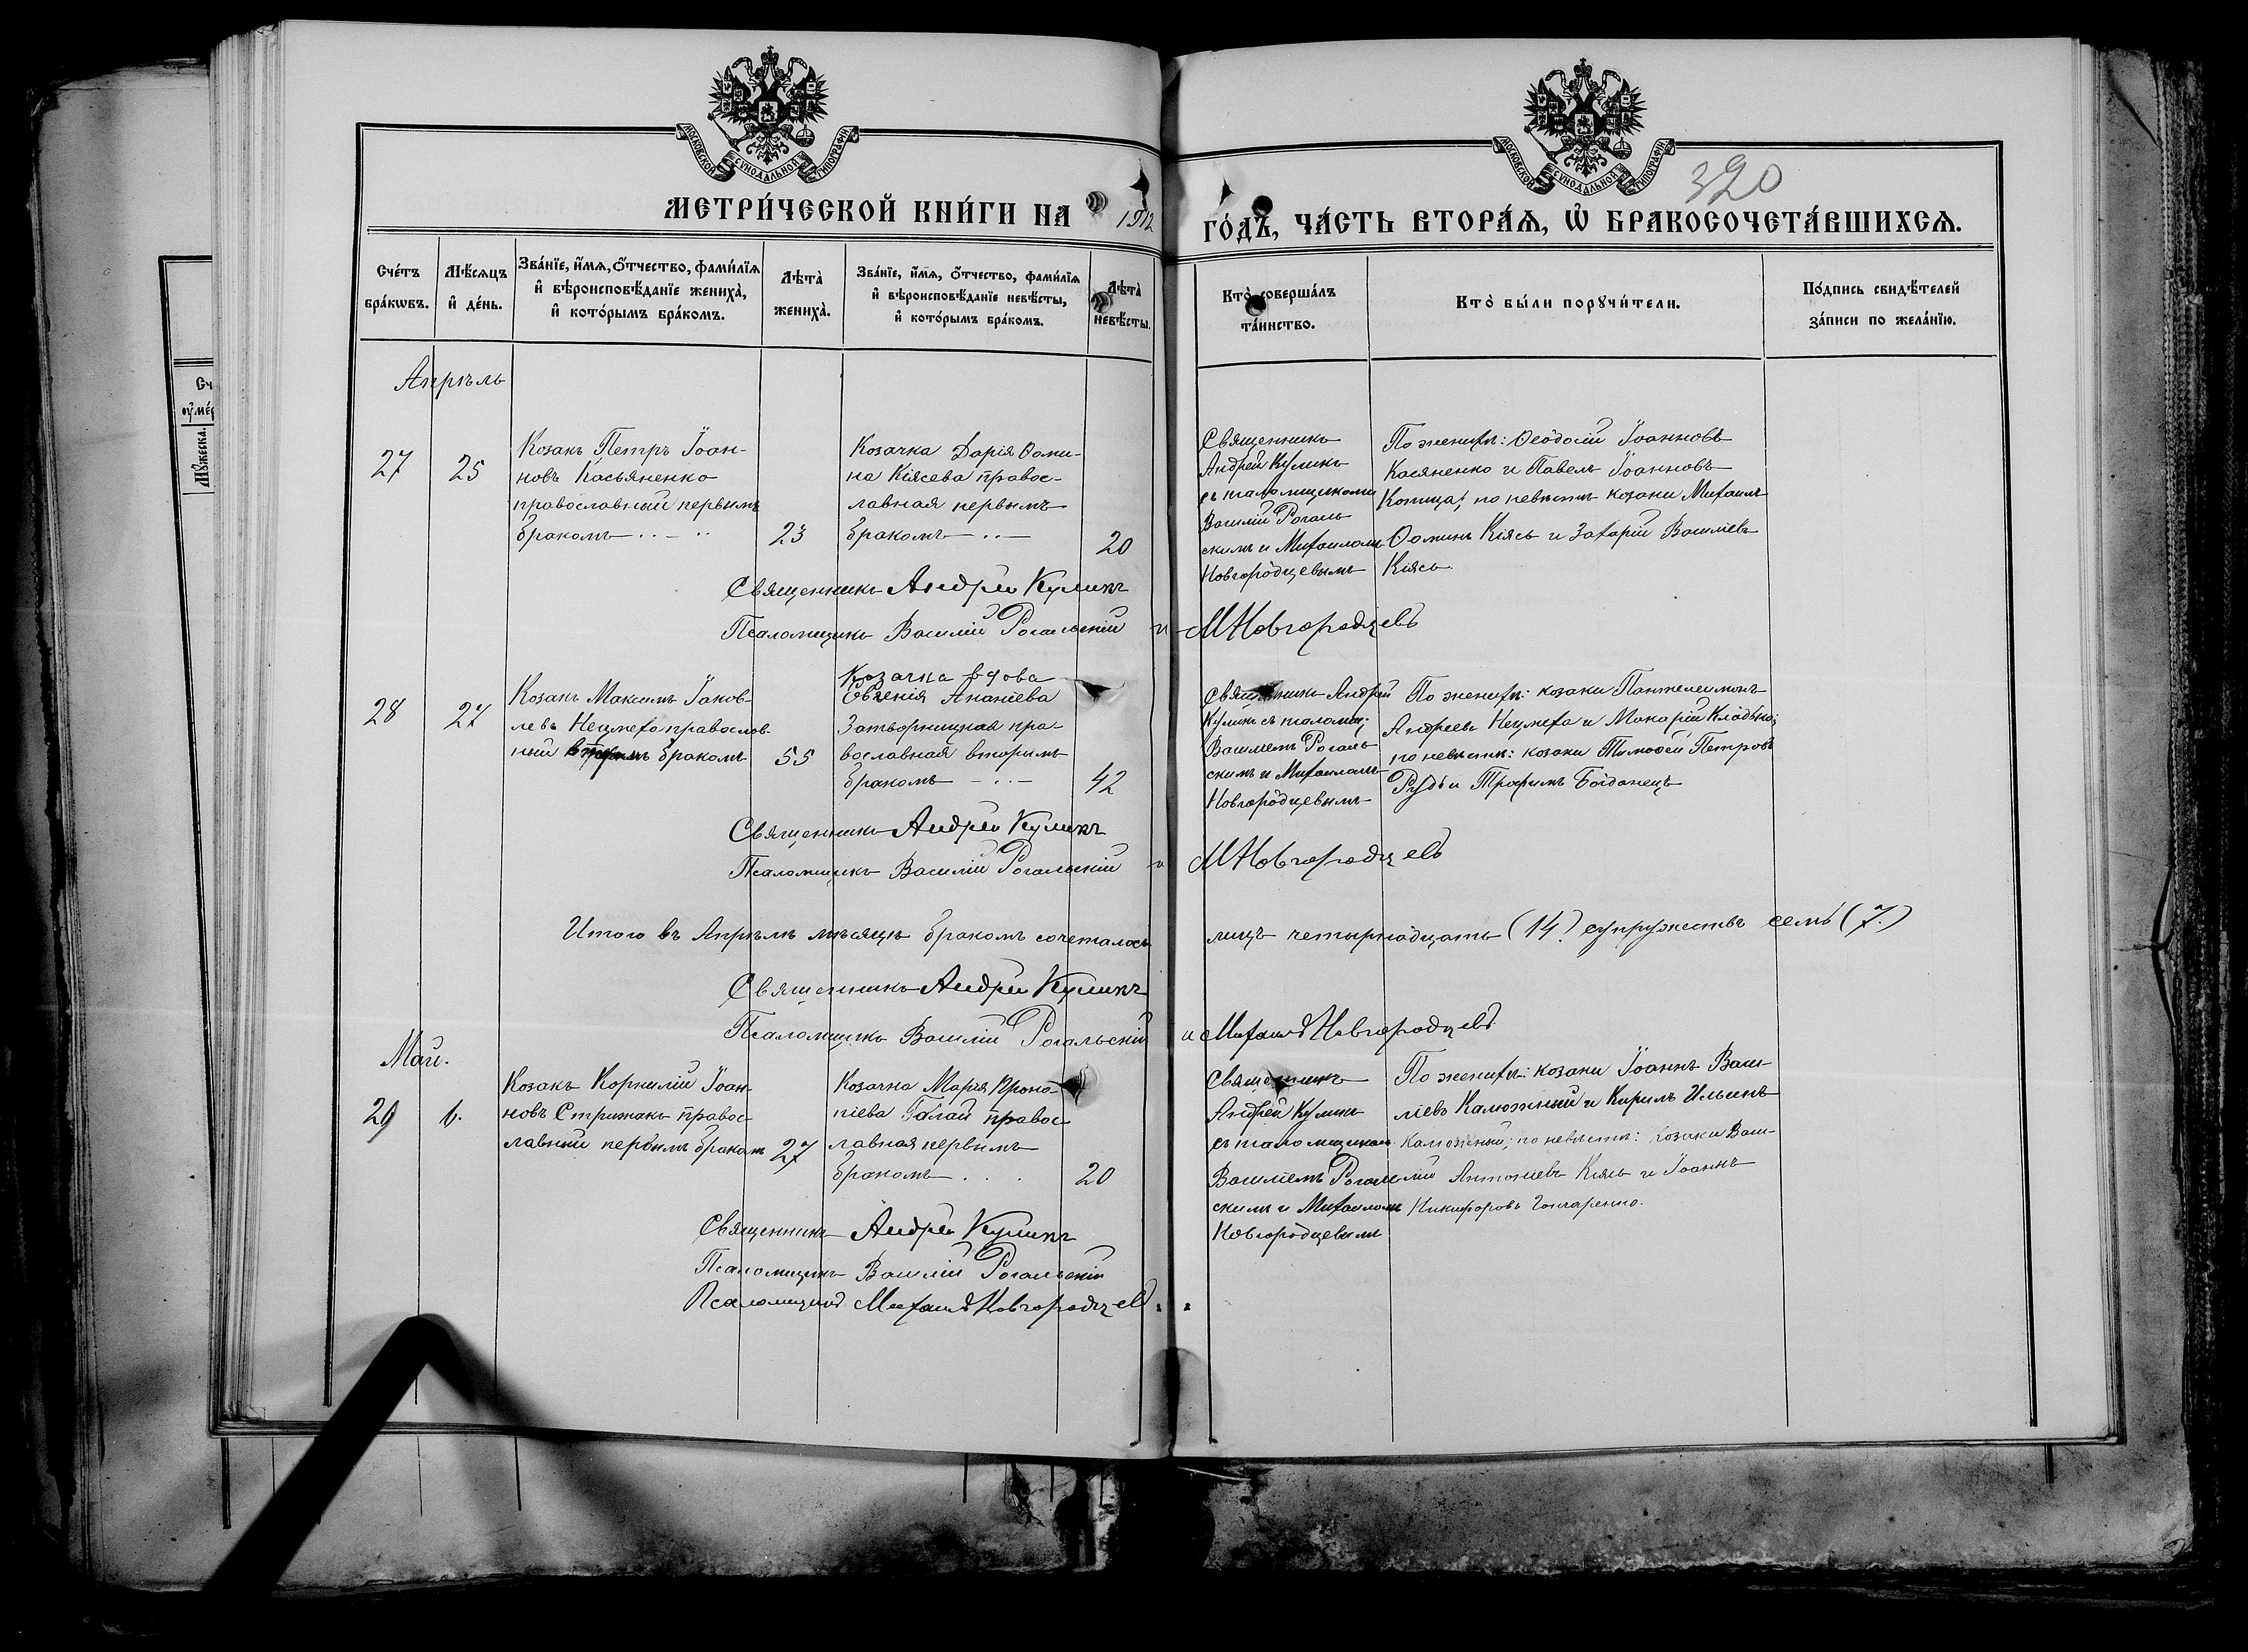 МОСКОВСКОЙ СѴНОДАЛЬНОЙ ТИПОГРАФІИ
МОСКОВСКОЙ СѴНОДАЛЬНОЙ ТИПОГРАФІИ
320
МЕТРИ́ЧЕСКОЙ КНИ́ГИ НА 1912 ГО́ДЪ, ЧА́СТЬ ВТОРА́Ѧ, Ѽ БРАКОСОЧЕТА́ВШИХСѦ.
Сче́тъ
бра́кѡвъ.
Мѣ́сѧцъ
и҆ де́нь.
Зва́нїе, и҆́мѧ, ѻ҆́тчество, фами́лїѧ
и҆ вѣроисповѣ́данїе жениха̀,
и҆ кото́рымъ бра́комъ.
Лѣ̑та̀
жениха̀.
Зва́нїе, и҆́мѧ, ѻ҆́тчество, фами́лїѧ
и҆ вѣроисповѣ́данїе невѣ́сты,
и҆ кото́рымъ бра́комъ.
Лѣ̑та̀
невѣ́сты.
Кто̀ соверша́лъ
та́инство.
Кто̀ бы́ли порꙋчи́тели.
По́дпись свидѣ́телей
за́писи по жела́нїю.
Апрѣль
27
25
Козакъ Петръ Іоан-
новъ Касьяненко
православный первымъ
бракомъ
23
Козачка Дарія Ѳоми-
на Кіясева правос-
лавная первымъ
бракомъ
20
Священникъ
Андрей Куликъ
съ псаломщиками
Василій Рогаль
скимъ и Михаиломъ
Новгородцевымъ
По женихѣ: Ѳеодосій Іоанновъ
Касяненко и Павелъ Іоанновъ
по невѣстѣ козаки Михаилъ
Ѳоминъ Кіясь и Захарій Василіевъ
Кіясь.
Священникъ Андрей Куликъ
Псаломщикъ Василій Рогальскій и МНовгородцевъ
28
27
Козакъ Максимъ Іаков-
левъ Нецмеха православ-
ный бракомъ
55
Козачка вдова
Евгенія Ананіева
Затворницкая пра-
вославная вторымъ
бракомъ
42
Священникъ Андрей
Куликъ съ псалом:
Василіемъ Рогаль
скимъ и Михаиломъ
Новгородцевымъ
По женихѣ: козаки Пантелеимонъ
Андреевъ Нецмеха и Макарій
по невѣстѣ: козаки Тимоѳей Петровъ
Рудь и Трофимъ Богданецъ
Священникъ Андрей Куликъ
Псаломщикъ Василій Рогальскій и МНовгородцевъ
Итого въ Апрѣлѣ мѣсяцѣ бракомъ сочеталось лицъ четырнадцать (14) супружествъ семь (7.)
Священникъ Андрей Куликъ
Псаломщикъ Василій Рогальскій и Михаилъ Новгородцевъ
Май.
29
1.
Козакъ Корнилій Іоан-
новъ Стрижакъ правос-
лавный первымъ бракомъ
27
Козачка Марія Проко-
піева Галай правос
лавная первымъ
бракомъ
20
Священникъ
Андрей Куликъ
съ псаломщиками
Василіемъ Рогаль
скимъ и Михаиломъ
Новгородцевымъ
По женихѣ: козаки Іоаннъ Васи-
ліевъ Калюжный и Кирилъ Ильинъ
Калюжный; по невѣстѣ: козаки Васи-
лій Антоніевъ Кіясь и Іоаннъ
Никифоровъ Гончаренко.
Священникъ Андрей Куликъ
Псаломщикъ Василій Рогальскій
Псаломщикъ Михаилъ Новгородцевъ